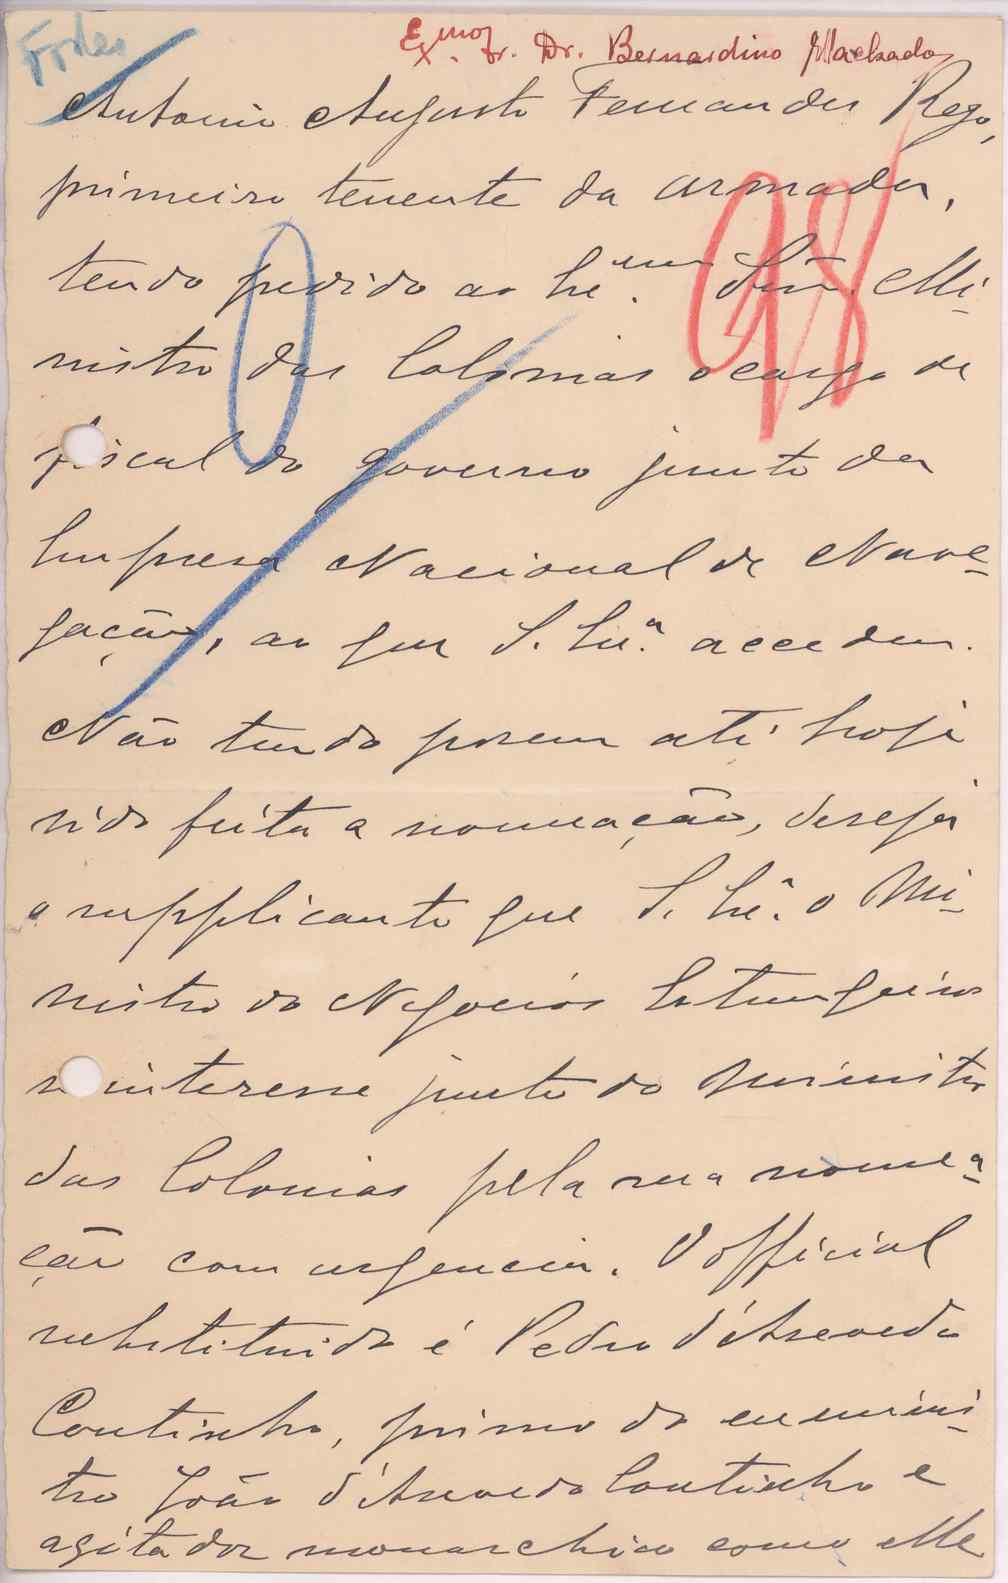 Exmo Sr. Dr. Bernardino Machado
Antonio Augusto Fernandes Rego,
primeiro tenente da armada,
tendo pedido ao Exmo. Snr. Mi-
nistro das Colonias o cargo de
fiscal do governo junto da
Empresa Nacional de Nave-
gação, ao que S. Exª. accedeu.
Não tendo porem até hoje
sido feita a nomeação, deseja
o supplicante que S. Exª. o Mi-
nistro do Negocios Estrangeiros
se interesse junto do Ministro
das Colonias pela sua nomea-
ção com urgencia. O official
substituido é Pedro d'Azevedo
Coutinho, primo do ex minis-
tro João d'Azevedo Coutinho e
agitador monarchico como elle
98